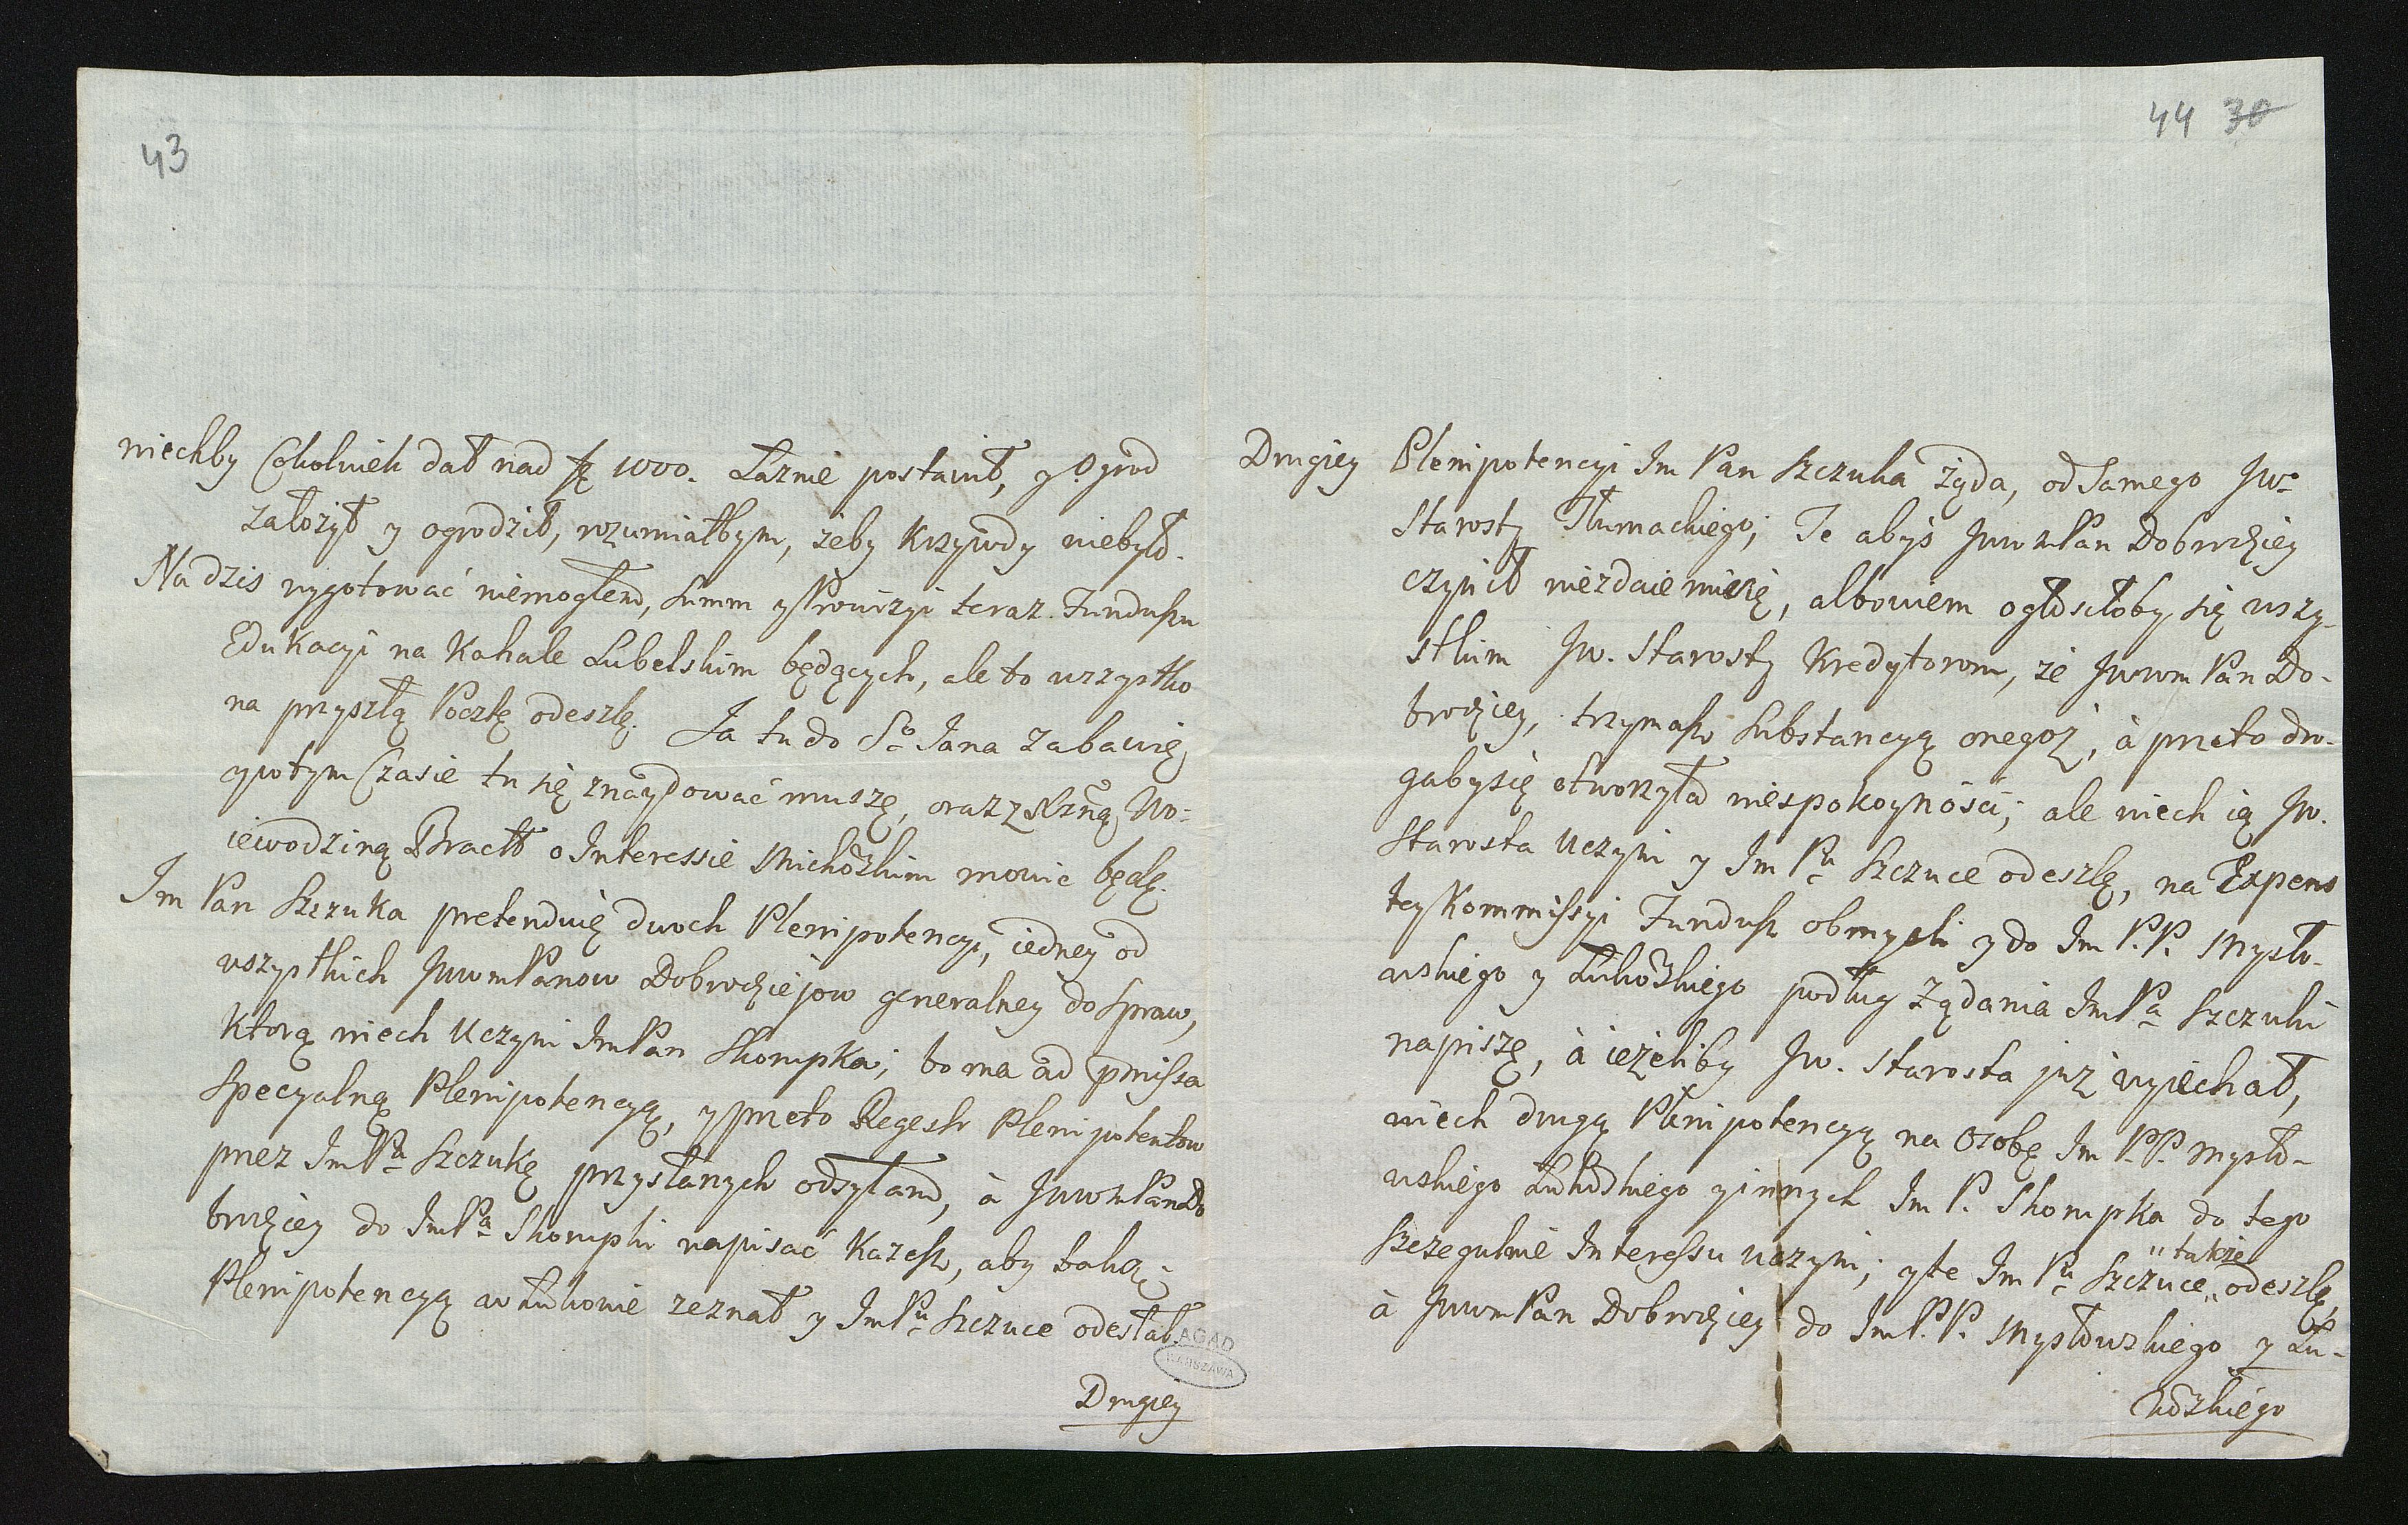 43
niechby Cokolwiek dał nad fz 1000. Łaznie postawił, y Ogrod
założył y ogrodził, rozumiałbym, żeby Krzywdy niebyło.
Na dzis wygotować niemogłem, Summ y Prowizyi teraz Funduszu
Edukacyi na Kahale Lubelskim będących, ale to wszystko
na przyszłą Pocztę odeszlę. Ja tu do So Jana zabawię
y po tym Czasie tu się znaydować muszę, oraz z Wo=
iewodziną Bracł o Interessie mowic będę.
Im Pan Szczuka pretenduię dwoch Plenipotencyi, iedney od
wszystkich JwwmPanow Dobrodziejow generalney do Spraw,
Ktorą niech Uczyni ImPan Skompka; bo ma ad pmissa
Specyalną Plenipotencyą, y przeto Regestr Plenipotentow
przez ImPa Szczukę przysłanych odsyłam, à JwwmPan Do
brodziey do ImPa Skompki napisać Każesz, aby taką
Plenipotencyą w Łukowie zeznał y ImPu Szczuce odesłał.
Drugiey
AGAD
WARSZAWA
44 30
Drugiey Plenipotencyi Im Pan Szczuka żąda, od Samego Jwo
Starosty Tłumackiego; Te abyś JwwmPan Dobrodziey
czynił niezdaie mi się, albowiem ogłosiłoby się wszy-
stkim Jw. Starosty Kredytorom, że Jwwm Pan Do-
brodziey, trzymasz Substancyą onegoż, à przeto dro-
gaby się otworzyła niespokoyności; ale niech ią Jw.
Starosta Uczyni y Im Pu Szczuce odeszlę, na Expens
tey Kommissyi Fundusz obmysli y do Im P.P. Mysło-
wskiego y podług Żądania ImPa Szczuki
napiszę, à ieżeliby Jw. Starosta już wyiechał,
niech drugą Plenipotencyą na Osobę Im P.P. Mysło-
wskiego y innych Im P. Skompka do tego
Szczegulnie Interessu uczyni; y te Im Pu Szczuce "także" odeszlę,
à JwwmPan Dobrodziey do Im P.P. Mysłowskiego y Łu-